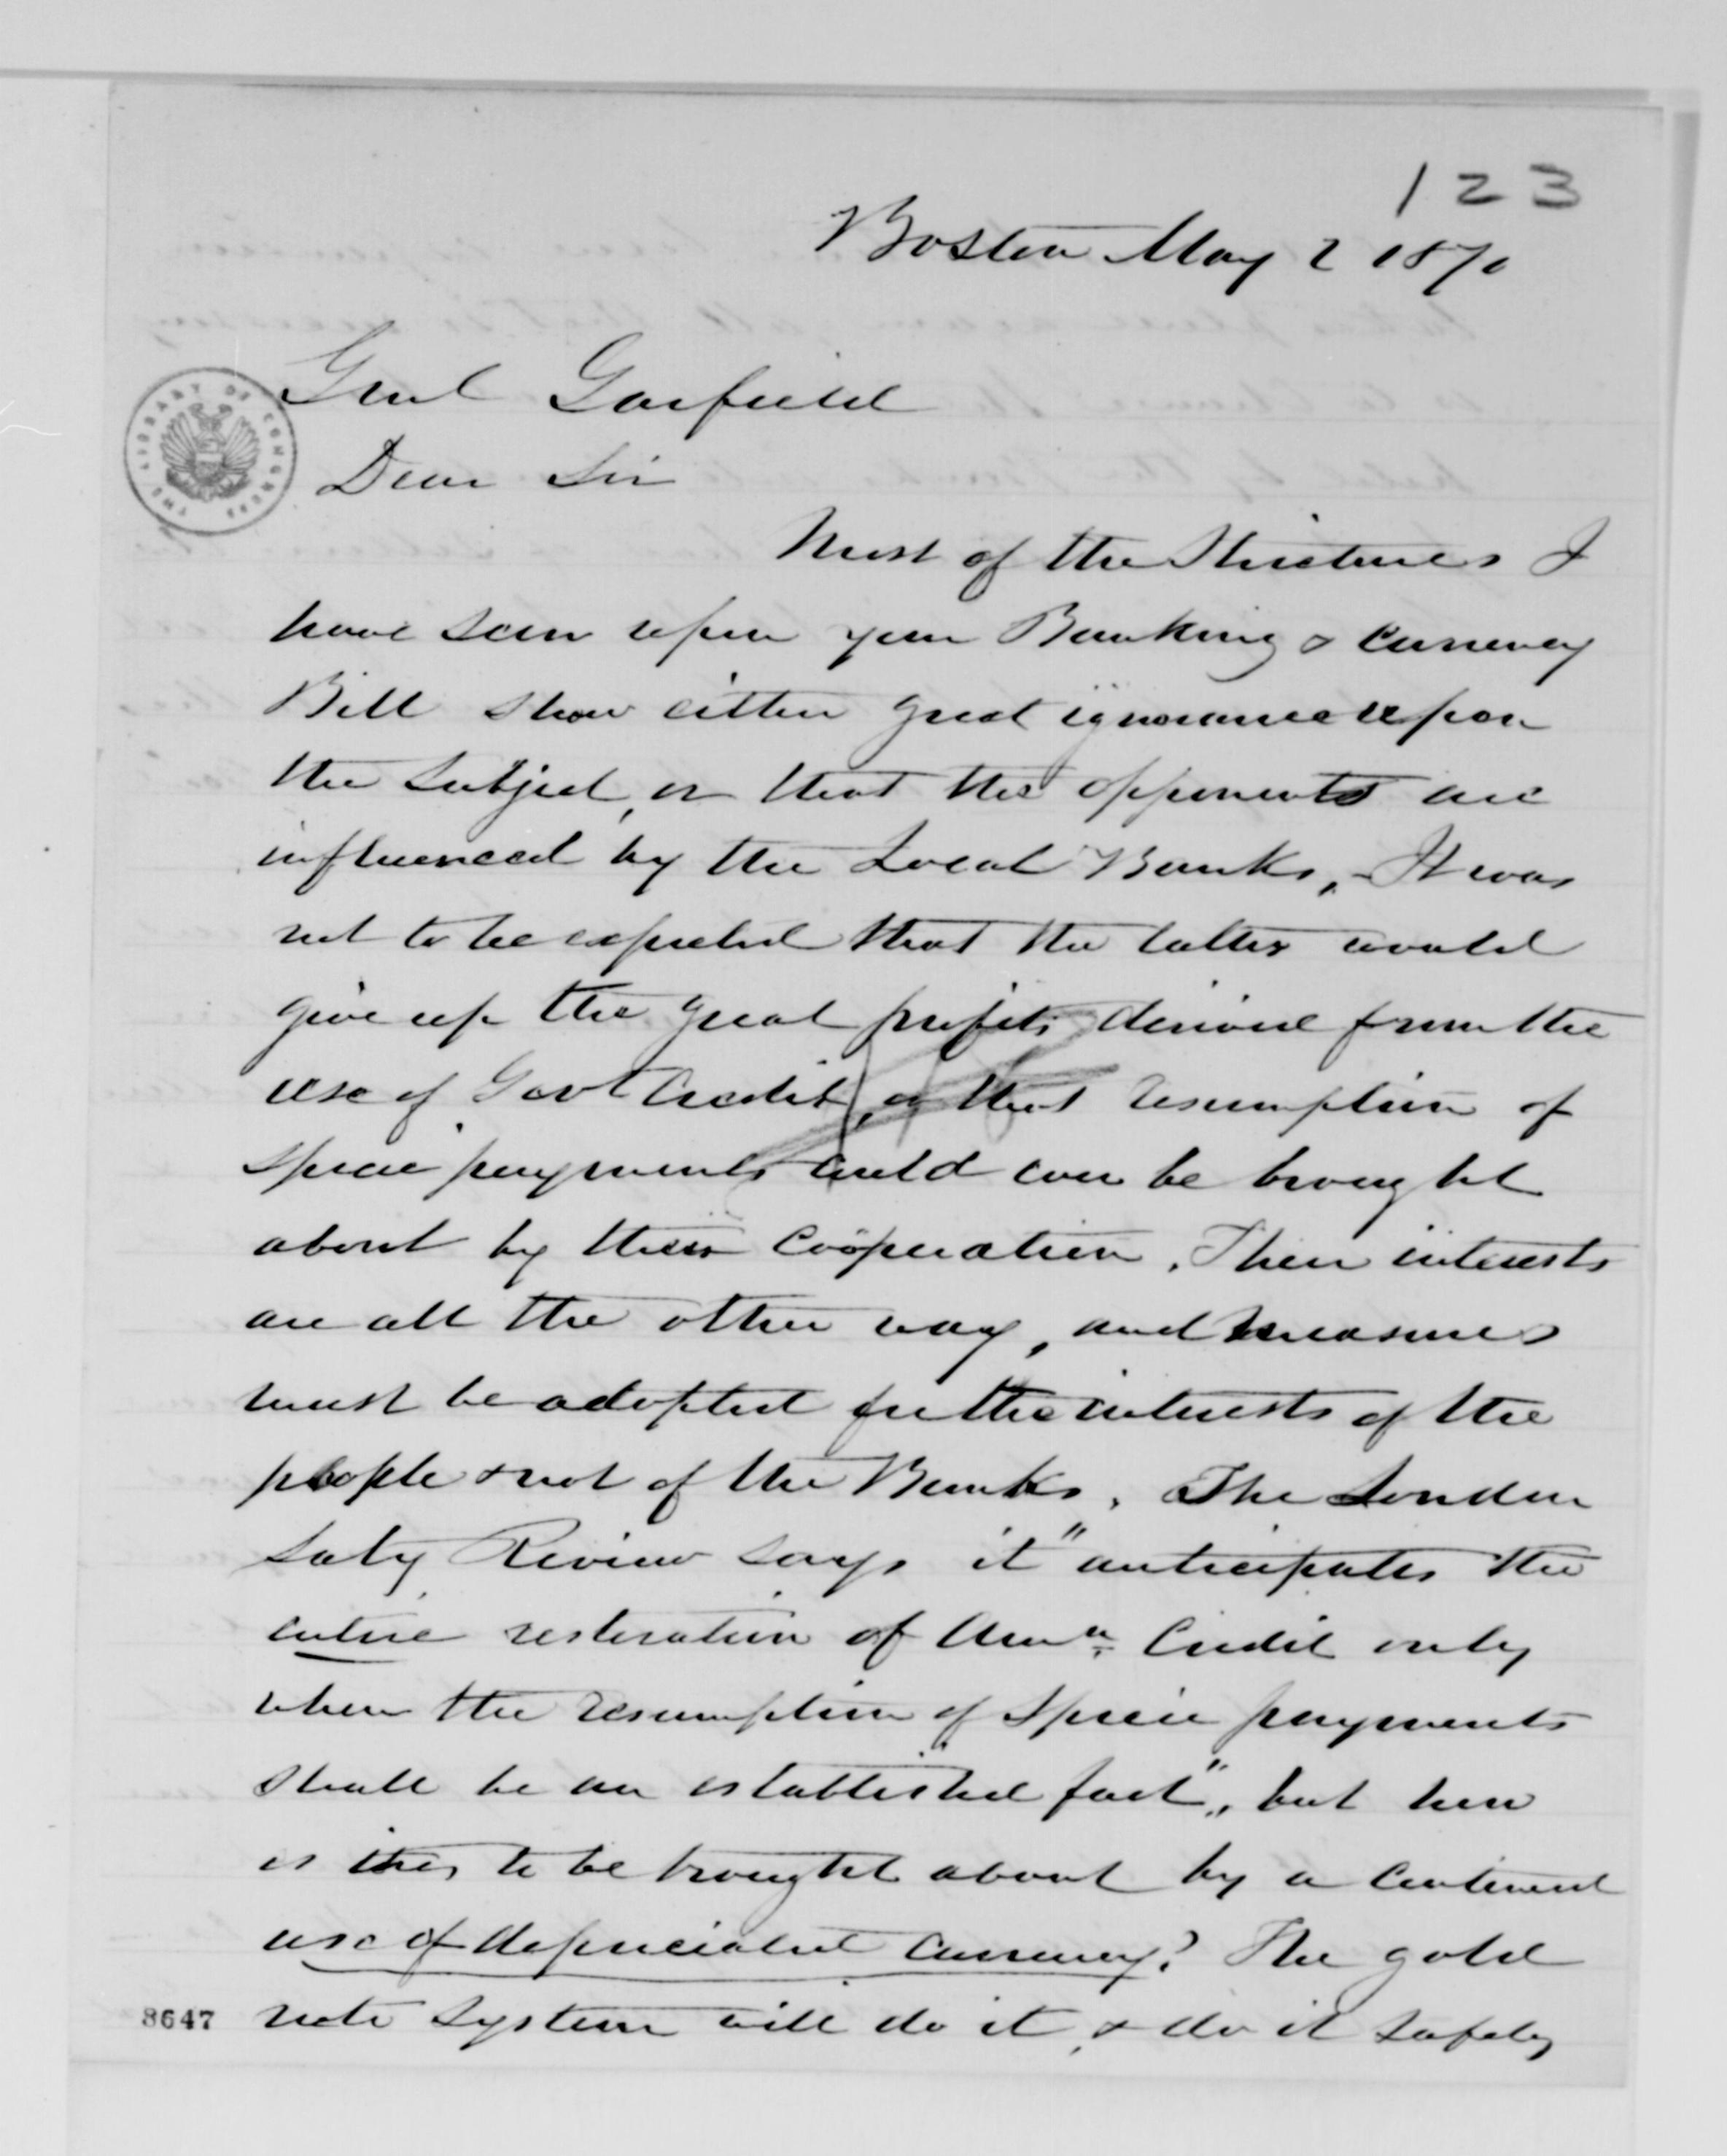 123
Boston May 2 1870
Genl Garfield
Dear Sir
Most of the Strictures I
have seen upon your Banking & Currency
Bill show either great ignorance upon
the subject, or that the opponents are
influenced by the Local Banks, - It was
not to be expected that the latter would
give up the great profits derived from the
use of Govt Credit, or that resumption of
specie payments could ever be brought
about by their coöperation. Their interests
are all the other way, and measures
must be adopted for the interests of the
people & not of the Banks. The London
Saty Review says it "anticipates the
entire restoration of Amn. Credit only
when the resumption of specie payments
shall be an established fact", but how
is this to be brought about by a continued
use of depreciated currency? The gold
note system will do it, & do it safely
8647
THE LIBRARY OF CONGRESS